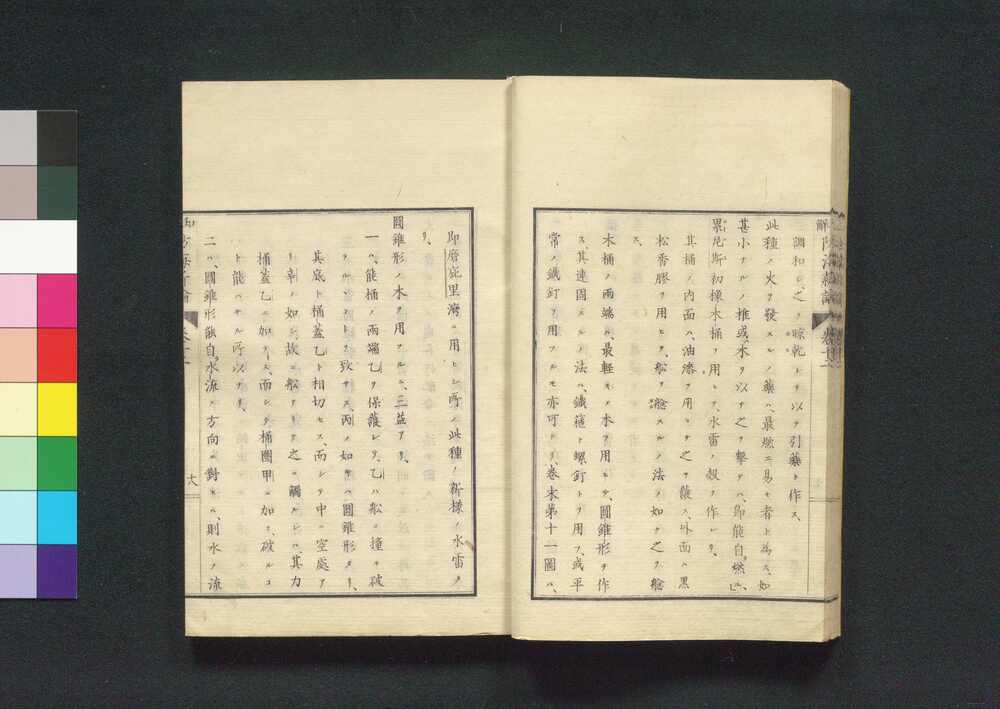 調和シ、之ヲ晾乾シ、以テ引藥ト作ス、
此種ノ火ヲ發スルノ藥ハ、最燃エ易キ者ト為ス、如
甚小ナルノ椎或ハ木ヲ以テ之ヲ擊テハ、即能自燃ユ、
累尼斯初様木桶ヲ用ヒテ、水雷ノ殻ヲ作レリ、
其桶ノ內面ハ、油漆ヲ用ヒテ之ヲ蔽ヒ、外面ハ黑
松香膠ヲ用ヒテ、船ヲ艌スルノ法ノ如ク之ヲ艌
木桶ノ兩端ハ、最軽キ木ヲ用ヒテ、圓錐形ヲ作
ス、其連固スルノ法ハ、鐵箍ト螺釘トヲ用フ、或平
常ノ鐵釘ヲ用フルモ亦可ナリ、卷末第十一圖ハ、
即磨庇里灣ニ用ヒシ所ノ此種ノ新様ノ水雷ナ
リ、
圓錐形ノ木ヲ用フルニ、三益アリ、
一ハ、能桶ノ兩端乙ヲ保護シテ、乙ハ船ニ撞キ破
ラルヽコトヲ致サス、丙ノ如キハ圓錐形ナリ、
其底ト桶蓋乙ト相切セス、而シテ中ニ空處ア
ルコト辛ノ如シ、故ニ船ヲシテ之ニ觸ルレハ、其力
桶蓋乙ニ加ヘスシテ、而シテ桶圈甲ニ加ヘ、破ルコ
ト能ハサル所以ナリ、
二ハ、圓錐形能自水流ノ方向ニ對セハ、則水ノ流